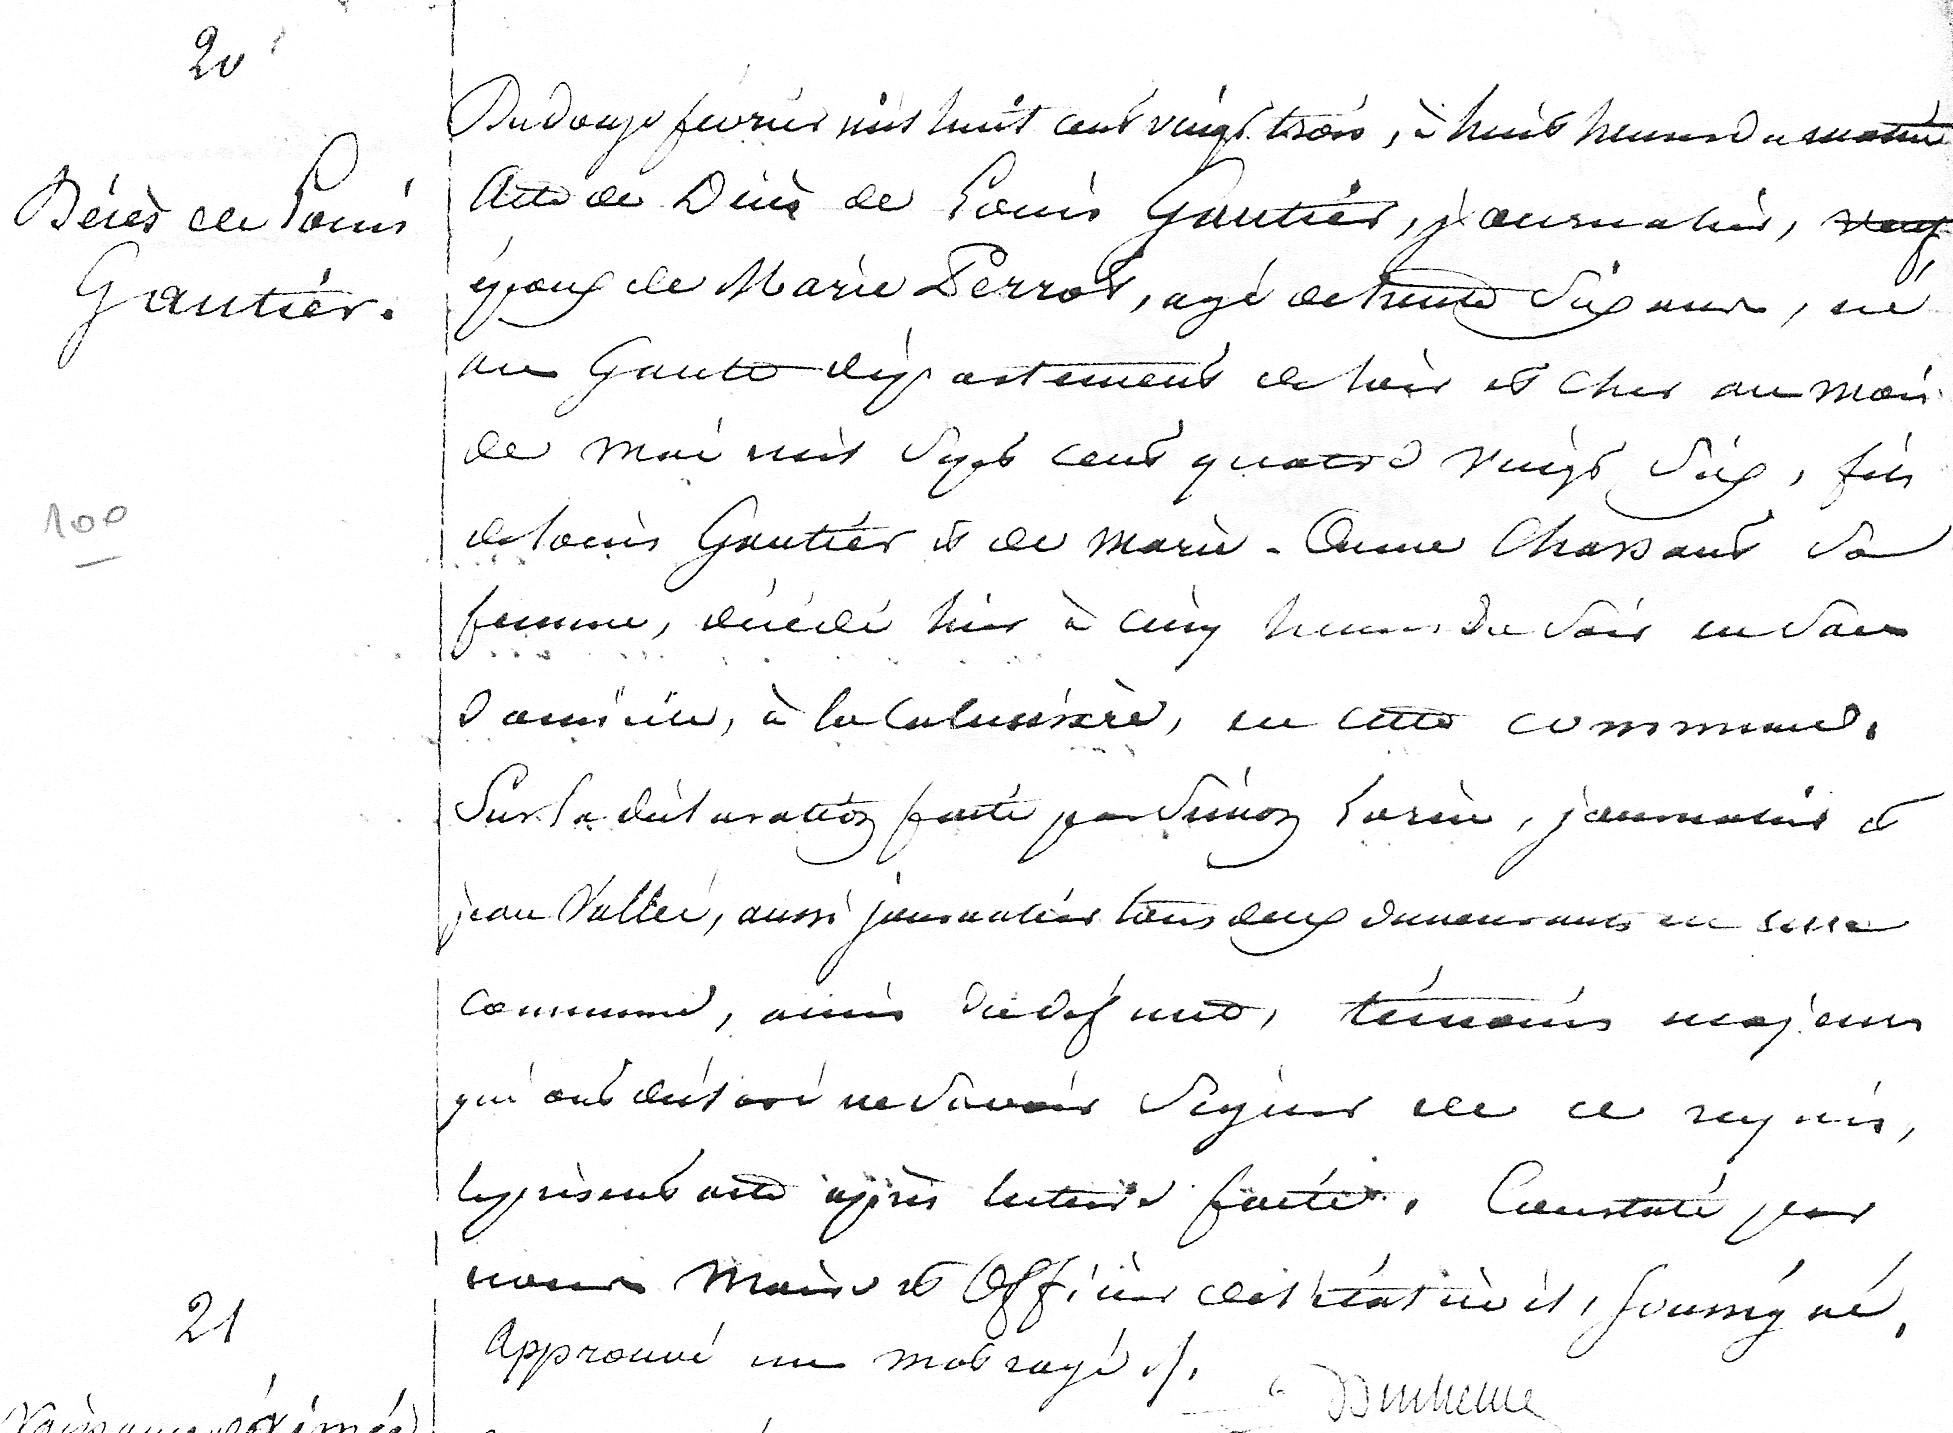 20
Décès de Louis
Gautier.
100
Du douze février mil huit cent vingt trois, à huit heures du matin
Acte de Décès de Louis Gautier, journalier, veuf
époux de Marie Perrot, agé de trente six ans, né
au Gault département de loir et Cher au mois
de mai mil sept cent quatre vingt six, fils
de louis Gautier et de Marie-Anne Chassant sa
femme, décédé hier à cinq heures du soir en son
domicile, à la en cette commune.
Sur la déclaration faite par Simon Lorin, journalier et
jean Vallée, aussi journalier tous deux demeurants en cette
commune, amis du défunt, témoins majeurs
qui ont déclaré ne savoir signer de ce requis,
le présent acte après lecture faite. Constaté par
nous Maire et Officier de l'état civil, soussigné.
Approuvé un mot rayé ./.
Duchesne
21